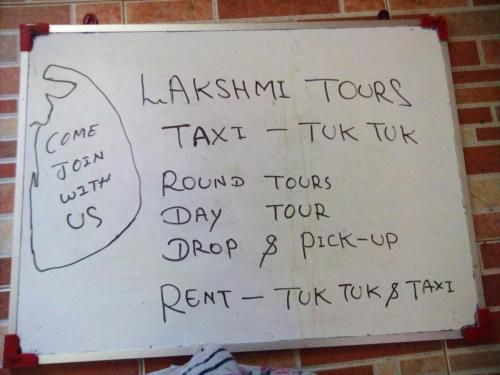 COME
JOIN
WITH
US
LAKSHMI TOURS
TAXI - TUK TUK
ROUND TOURS
DAY TOUR
DROP & PICK-UP
RENT - TUK TUK & TAXI